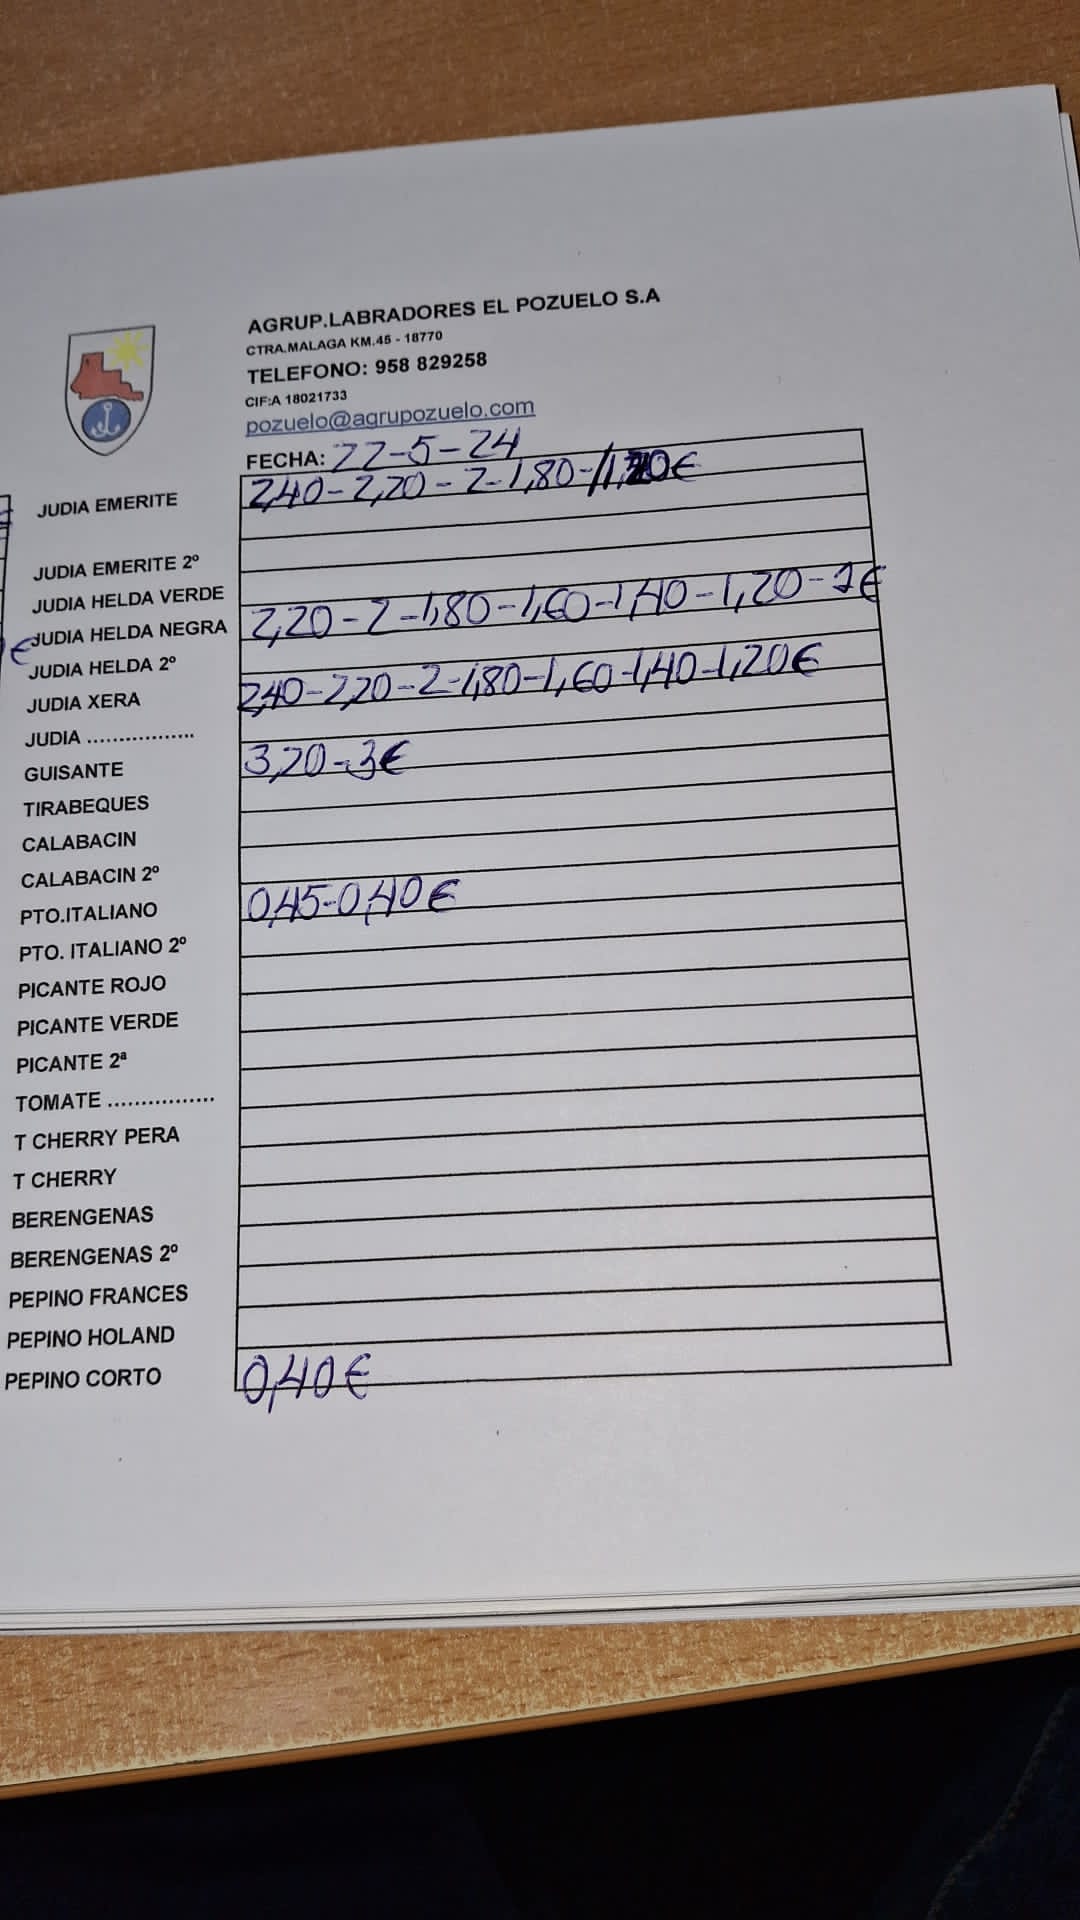 AGRUP.LABRADORES EL POZUELO S.A
CTRA.MALAGA KM.45 - 18770
TELEFONO: 958 829258
CIF:A 18021733
pozuelo@agrupozuelo.com
FECHA: 22-5-24
JUDIA EMERITE 2,40-2,20-2-1,80-
JUDIA EMERITE 2º
JUDIA HELDA VERDE
JUDIA HELDA NEGRA 2,20-2-1,80-1,60-1,40-1,20-1€
JUDIA HELDA 2º
JUDIA XERA 2,40-2,20-2-1,80-1,60-1,40-1,20€
JUDIA ................
GUISANTE 3,20-3€
TIRABEQUES
CALABACIN
CALABACIN 2º
PTO.ITALIANO 0,45-0,40€
PTO. ITALIANO 2º
PICANTE ROJO
PICANTE VERDE
PICANTE 2ª
TOMATE ................
T CHERRY PERA
T CHERRY
BERENGENAS
BERENGENAS 2º
PEPINO FRANCES
PEPINO HOLAND
PEPINO CORTO 0,40€